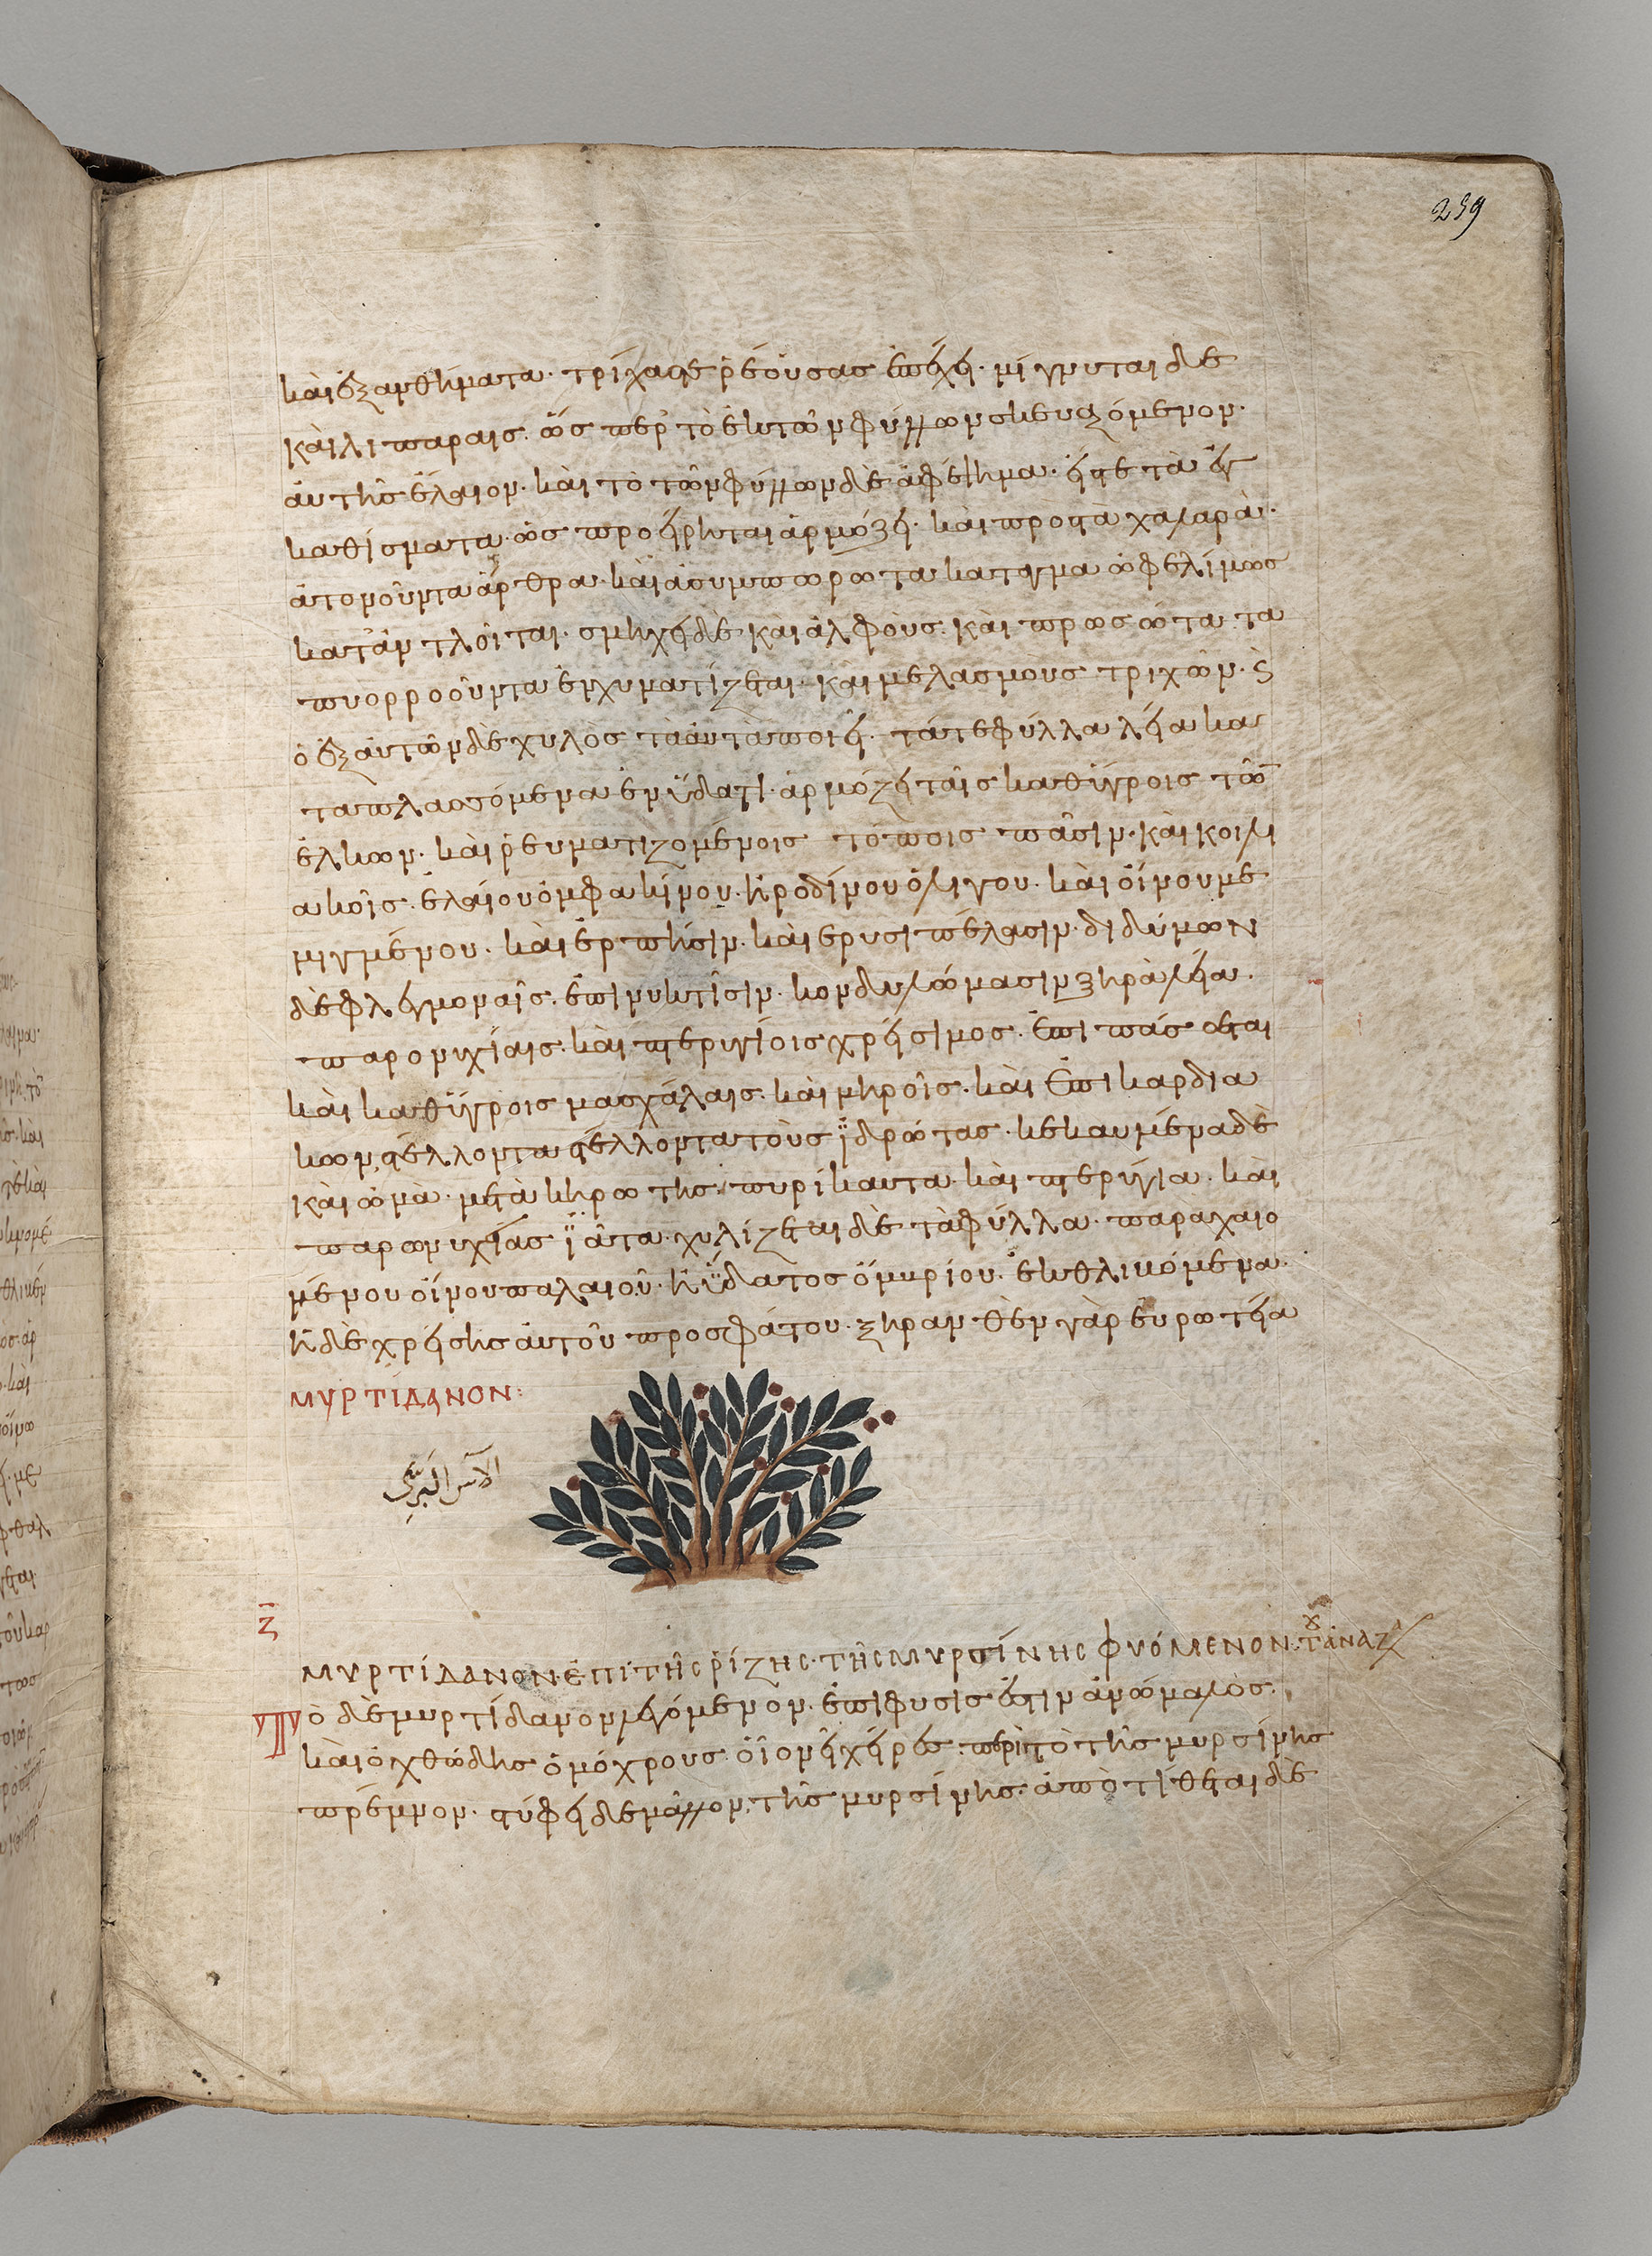 239
καὶ ἐξανθήματα· τρίχας τε ῥεούσας ἐπέχει· μίγνυται δὲ
καὶ λιπαραῖς· ὥσπερ τὸ ἐκ τῶν φύλλων σκευαζόμενον·
αὐτῆς ἔλαιον· καὶ τὸ τῶν φύλλων δὲ ἀφέψημα· εἴς τε τὰ ἐγ
καθίσματα· ὡς προείρηται ἁρμόζει· καὶ πρὸς τὰ χαλαρὰ·
ἀτονοῦντα ἄρθρα· καὶ ἀσυμπώρωτα κατάγμα ὠφελίμως
κατἀντλεῖται· σμήχει δὲ καὶ ἀλφοὺς· καὶ πρὸς ὦτα τὰ
πυορροοῦντα ἐνχυματίζεται· καὶ μελασμοὺς τριχῶν· ϛ
ὁ ἐξ αὐτῶν δὲ χυλὸς τὰ αὐτὰ ποιεῖ· τά τε φύλλα λεῖα κα
ταπλασσόμενα ἐν ὕδατι· ἁρμόζει ταῖς καθύγροις τῶ
ἑλκων· καὶ ῥευματιζομένοις τόποις πᾶσιν· καὶ κοιλι
ακοῖς· ἐλαίου ὀμφακίνου· ἢ ροδίνου ὀλίγου· καὶ οἴνου με
μιγμένου· καὶ ἕρπησιν· καὶ ἐρυσιπέλασιν· διδύμων
δὲ φλεγμοναῖς· ἐπινυκτίσιν· κονδυλώμασιν ξηρὰ λεῖα·
παρονυχίαις· καὶ πτερυγίοις χρήσιμος· ἐπιπάσσεται
καὶ καθύγροις μασχάλαις· καὶ μηροῖς· καὶ ἐπὶ καρδια
κων, στέλλοντα στέλλοντα τοὺς ἱδρῶτας· κεκαυμένα δὲ
καὶ ὠμὰ· μετὰ κηρωτῆς· πυρίκαυτα· καὶ πτερύγια· καὶ
παρωνυχίας ἰᾶται· χυλίζεται δὲ τὰ φύλλα· παραχαιο
μένου οἴνου παλαιοῦ· ἢ ὕδατος ὀμβρίου· ἐκθλιβόμενα·
ἡ δὲ χρήσης αὐτοῦ προσφάτου· ξηρανθὲν γὰρ εὐρωτιᾶ
ΜΥΡΤΊΔΑΝΟΝ:
الآس البري
ξ
ΜΥΡΤΊΔΑΝΟΝ· ἘΠῚ ΤΗ͂Σ ῥΊΖΗς· ΤΗ͂ς ΜΥΡσΊΝΗς ΦΥΌΜΕΝΟΝ·
Τὸ δὲ μυρτίδανον λεγόμενον· ἐπίφυσις ἐστὶν ἀνώμαλὸς·
καὶ ὀχθώδης ὁμόχρους· οἱονεὶ χεῖρες· περὶ τὸ τῆς μυρσίνης
πρέμνον· στύφει δὲ μᾶλλον, τῆς μυρσίνης· ἀποτίθεται δὲ